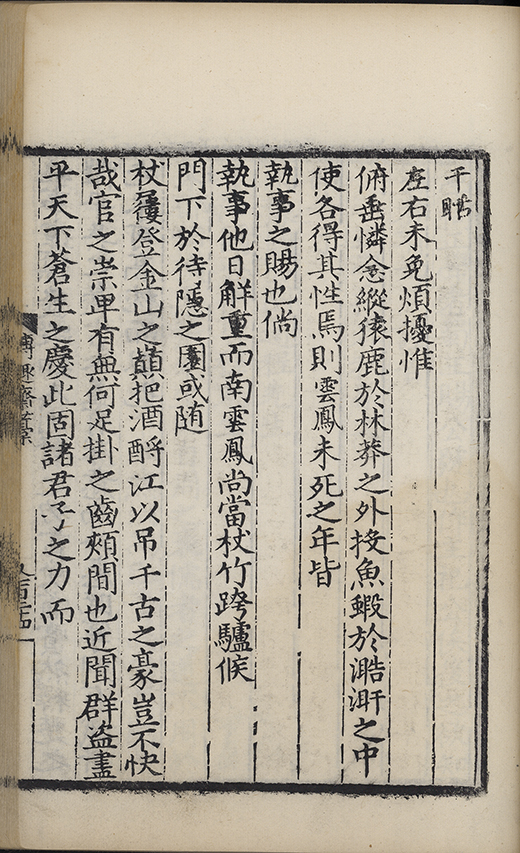 干瞻
左右未免煩擾惟
俯垂憐念縱猿鹿於林莽之外投魚鰕於澔汗之中
使各得其性焉則雲鳳未死之年皆
執事之賜也倘
執事他日解重而南雲鳳尚當杖竹跨驢候
門下於待隱之園或随
杖屨登金山之巔把酒酹江以吊千古之豪豈不快
哉官之崇卑有無何足掛之齒頰間也近聞群盗盡
平天下蒼生之慶此固諸君子之力而
博趣齋藁